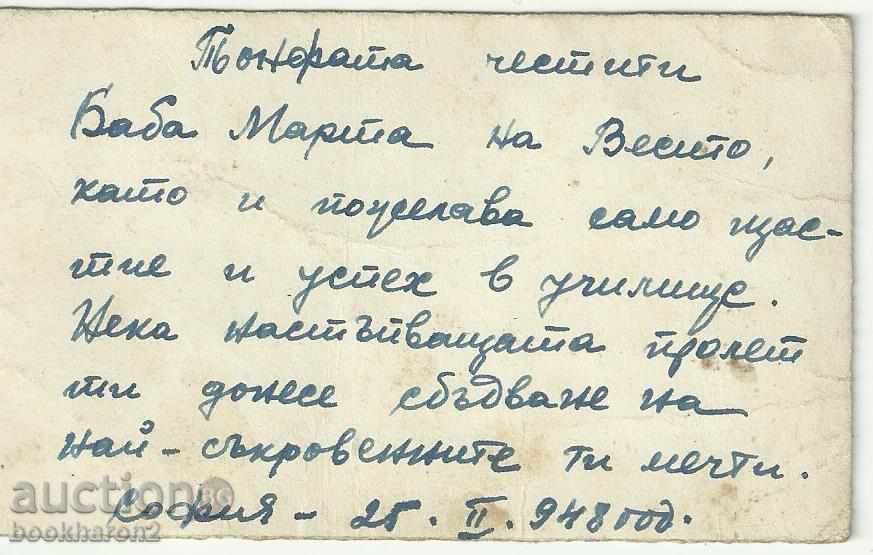 честити
Баба Марта на Весито,
като и пожелава само щас-
тие и успех в училище.
Нека настъпващата пролет
ти донесе сбъдване на
най-съкровенните ти мечти.
София - 25. II. 948 год.
auction
bookharon2